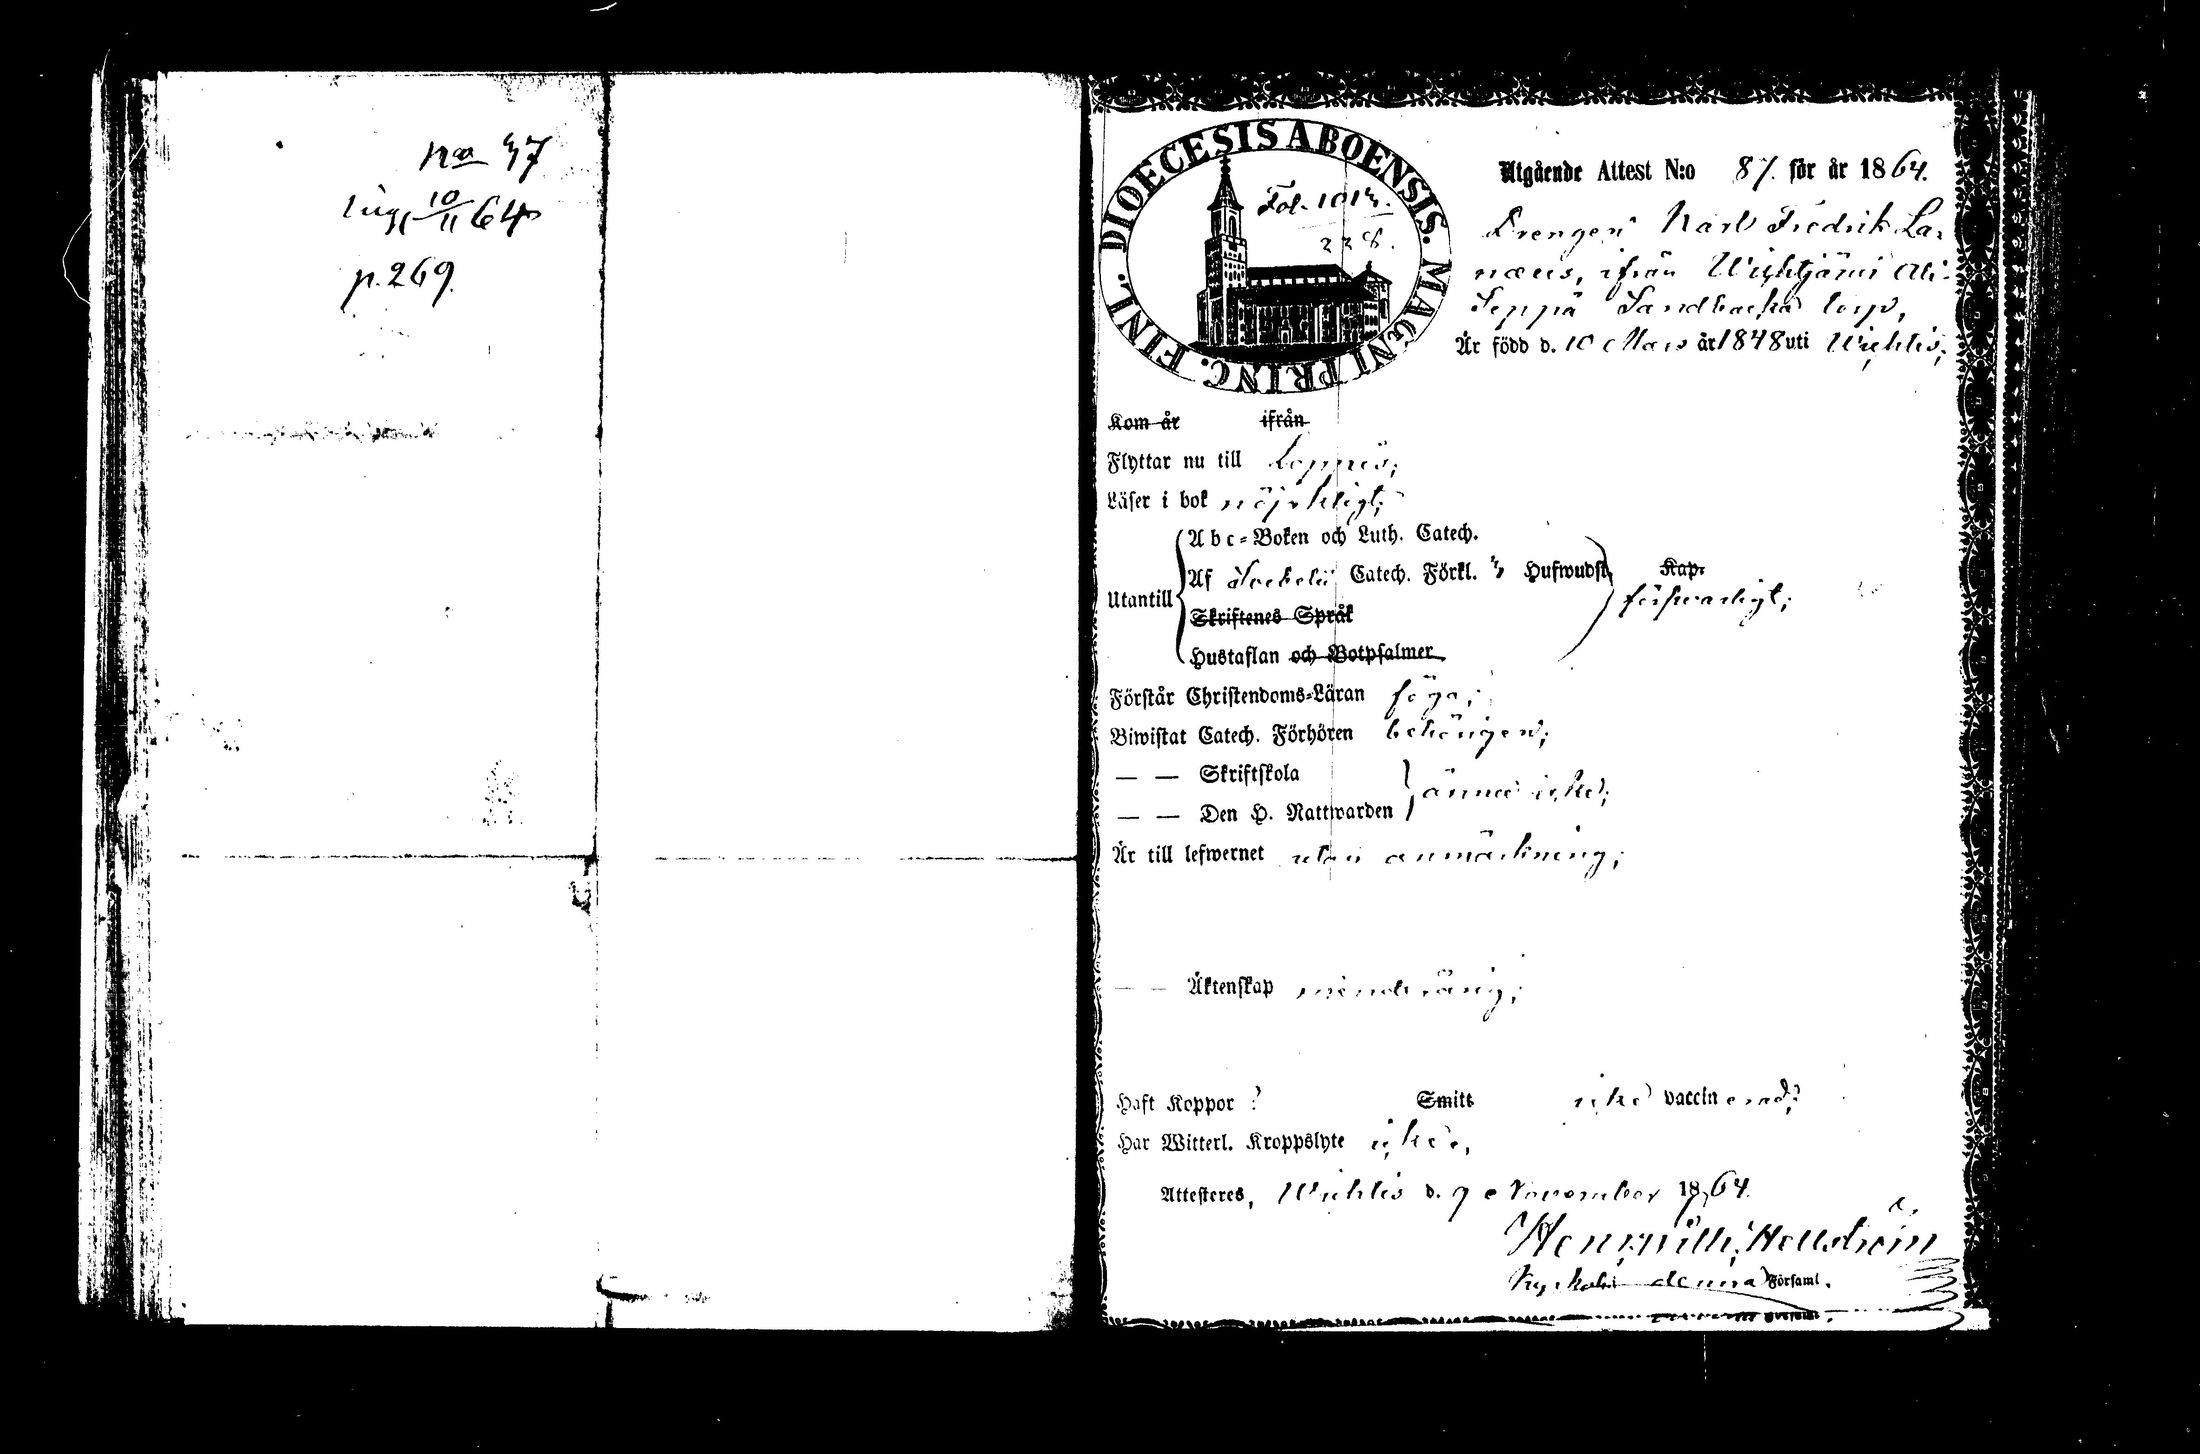 No 37
ing. 10/11 64
p. 269.
DIOECESIS ABOENSIS. MAGNI PRINC. FINL.
Fol. 1013.
228.
Utgående Attest N:o 87. för år 1864.
Drengen Karl Fredrik La-
næus, ifrån Wichtjärvi Ali-
Seppä Sandbacka torp,
Är född d. 10 Mars år 1848 uti Wichtis;
Kom år ifrån
Flyttar nu till Loppis;
Läser i bok nöjaktigt;
Abc-Boken och Luth. Catech.
Utantill Af Svebelii Catech. Förkl. Hufwudst. Kap.
försvarligt;
Skriftenes Språk
Hustaflan och Botpsalmer
Förstår Christendoms-Läran föga;
Biwistat Catech. Förhören behörigen;
— — Skriftskola
ännu icke;
— — Den H. Nattwarden
Är till lefwernet utan anmärkning;
— — Äktenskap minderårig;
Haft Koppor ? Smitt icke vaccinerad?
Har Witterl. Kroppslyte icke,
Attesteres, Wichtis d. 9 November 1864.
Hellström
denna Församl.